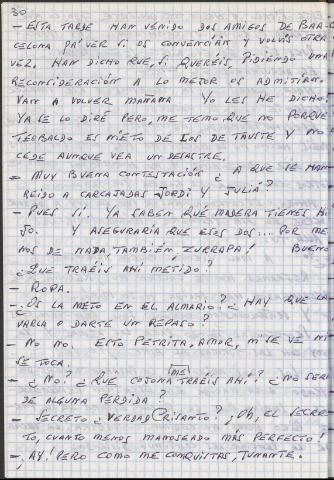 30
- ESTA TARDE HAN VENIDO DOS AMIGOS DE BAR-
CELONA PA' VER SI OS CONVENCÍAN Y VOLVÍS OTRA
VEZ. HAN DICHO QUE, SI QUERÉIS, PIDIENDO UNA
RECONSIDERACIÓN A LO MEJOR OS ADMITÍAN.
VAN A VOLVER MAÑANA YO LES HE DICHO,
YA SE LO DIRÉ PERO, ME TEMO QUE NO PORQUE
TEOBALDO ES NIETO DE LOS DE TAUSTE Y NO
CEDE AUNQUE VEA UN DESASTRE.
- MUY BUENA CONTESTACIÓN ¿ A QUE SE HAN
REÍDO A CARCAJADAS JORDI Y JULIÁ?
- PUES SÍ. YA SABEN QUÉ MADERA TIENES HI
JO. Y ASEGURARÍA QUE ESOS DOS... POR ME
NOS DE NADA, TAMBIÉN ZURRAPA! BUENO
¿QUE TRAÉIS AHÍ METIDO?
- ROPA.
- ¿OS LA METO EN EL ALMARIO? ¿ HAY QUE LA
VARLA O DARTE UN REPASO?
- NO NO. ESTO PETRITA, AMOR, NI SE VE NI
SE TOCA.
- ¿NO? ¿ QUÉ COSONA ME TRAÉIS AHÍ? ¿NO SERÁ
DE ALGUNA PERDIDA?
- SECRETO ¿VERDAD CRISANTO? ¡OH, EL SECRE-
TO, CUANTO MENOS MANOSEADO MÁS PERFECTO!
- ¡AY! PERO COMO ME CONQUISTAS, TUNANTE.